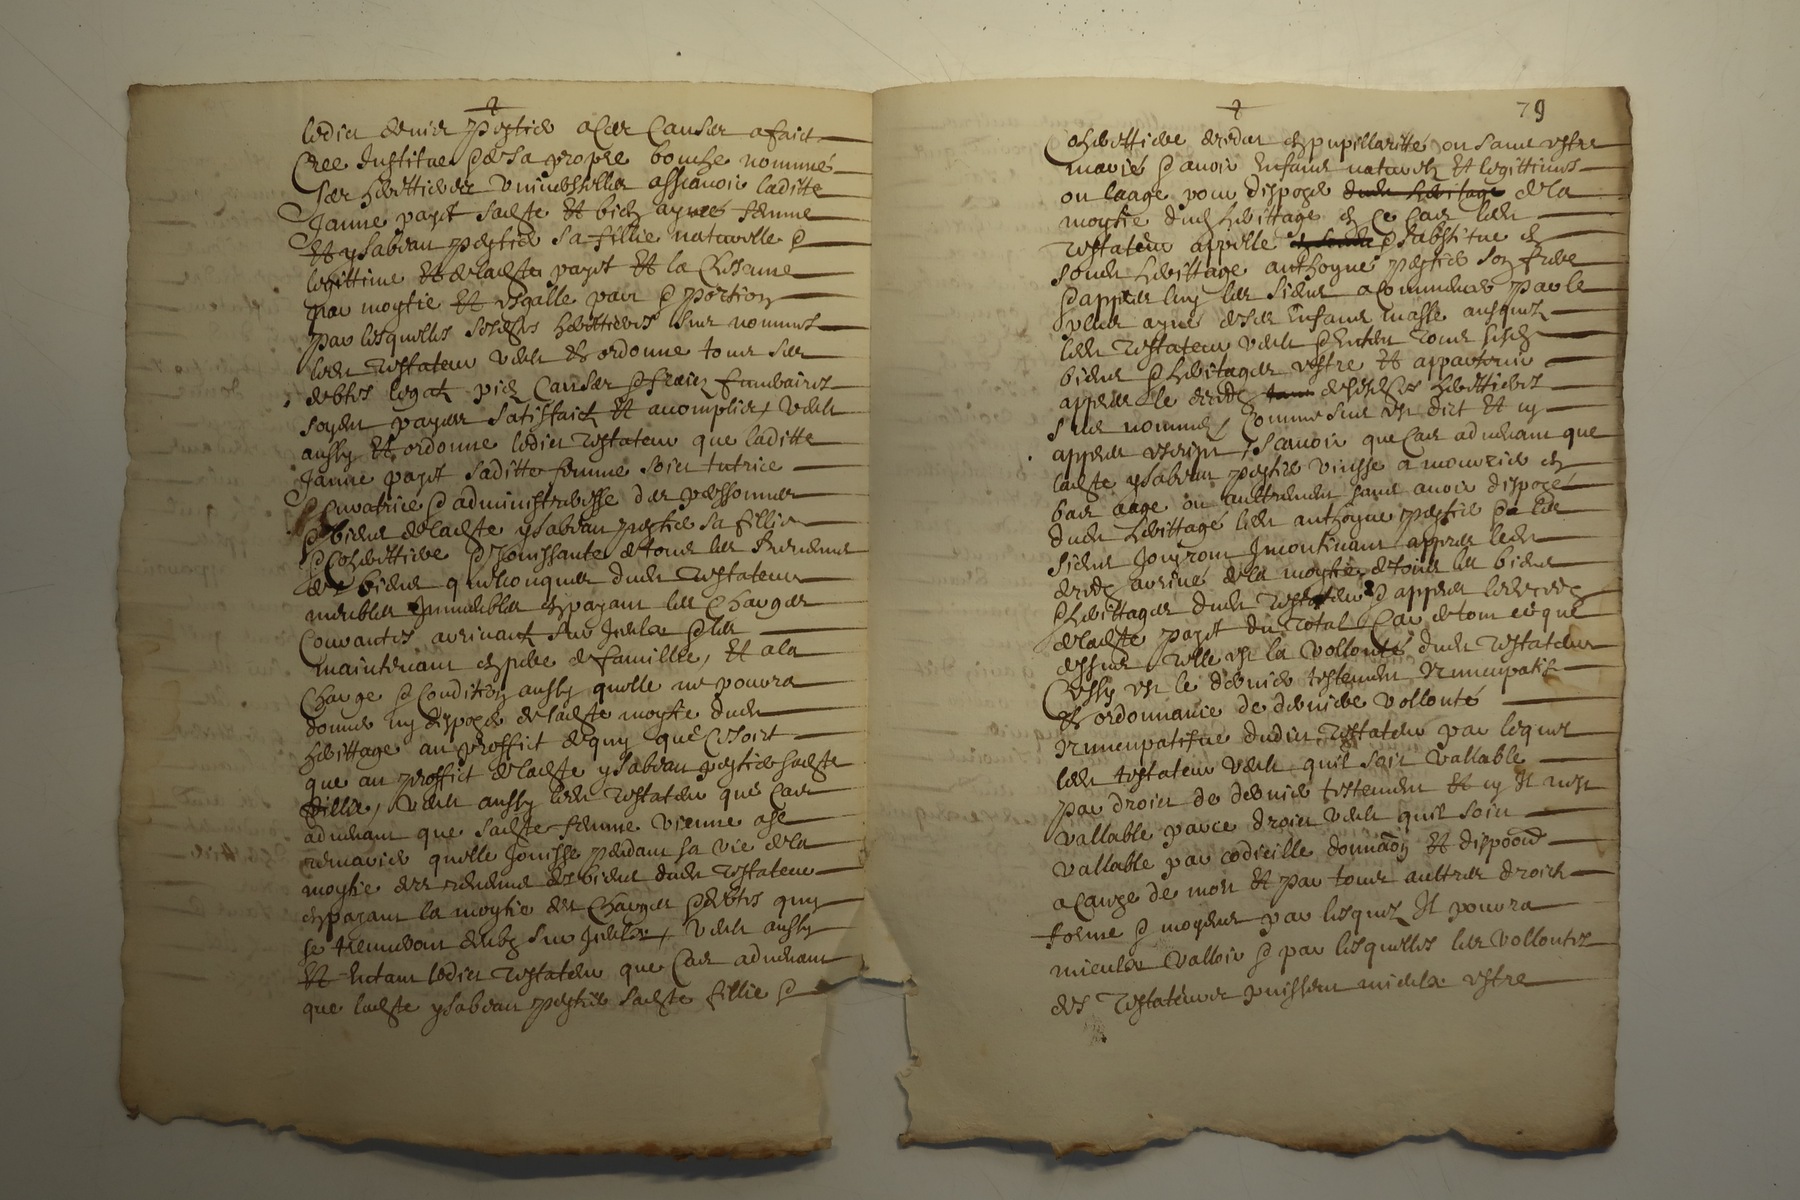 ledict denier pestier a ces causes a faict
cree Institue & de sa propre bouche nommé
ses herittieres universelles assavoir laditte
Janne pagit sadite et bien aymée femme
et ysabeau pestier sa fillie naturelle &
legittime et de ladite pagit et la chescune
par moytie et esgalle part & portion
par lesquelles sesdites herittieres sus nommes
ledit testateur veult et ordonne tous ses
debtes legatz pies causes & fraiz funeraires
soyent payees satisfaictz et acomplies, veult
aussy et ordonne ledict testateur que laditte
Janne pagit saditte femme soict tutrice
Curatrice & administreresse des personnes
& biens de ladite ysabeau pestier sa fillie
& coherittiere & Jouissante de tous les revenus
des biens quelconques dudit testateur
meubles Immeubles en payant les charges
Courantes arrivant sur Iceulx & les
maintenant en pere de famillie, et a la
Charge & Condition aussy quelle ne pourra
donner ny dispoze de ladite moytie dudit
herittage au proffict de quy que ce soict
que au proffict de ladite ysabeau pestier sadite
fillie, veult aussy ledit testateur que cas
advenant que sadite femme vienne a se
remarier quelle Jouisse pendant sa vie de la
moytie des revenus des biens dudit testateur
en payant la moytie des charges & debtes quy
se treuveront deubz sur Iceulx, veult aussy
et entant ledict testateur que cas advenant
que ladite ysabeau pestier sadite fillie &
79
Coherittiere decedat en pupillaritté ou sans estre
mariée & avoir enfans naturelz et legittimes
ou laage pour dispoze dudit heritage de la
moytie dudit herittage en ce cas ledit
testateur appelle & substitue en
sondit herittage anthoyne pestier son frere
& appres luy les siens a commencer par le
plus ayné de ses enfans masle ausquelz
ledit testateur veult & entent tous sesditz
biens & heritages estre et appartenir
appres le decedz de sesdites herittieres
sus nommes, Comme sus est dict et cy
appres escript, scavoir que cas advenant que
ladite ysabeau pestier vinsse a mourir en
bas aage ou aultrement sans avoir dispozé
dudit herittage ledit anthoyne pestier & les
siens Jouyront Incontinant appres ledit
decedz arrivé de la moytie de tous les biens
& herittages dudit testateur & appres le decedz
de ladite pagit du total Car de tout ce que
dessus telle est la vollonté dudit testateur
Cessy est le dernier testement nuncupatif
et ordonnance de derniere vollonté
nuncupatifve dudict testateur par lequel
ledit testateur veult quil soit vallable
par droict de dernier testement et cy Il nest
vallable par ce droict veult quil soict
vallable par codicille donnaon et dispoon
a cauze de mort et par tous aultres droictz
forme & moyens par lesquelz Il pourra
mieulx valloir & par lesquelles les vollontes
des testateurs puissent mieulx estre